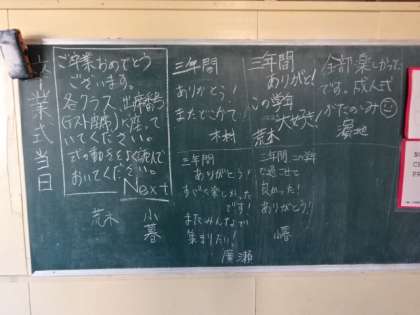 卒業式当日
ご卒業おめでとう
ございます。
各クラス、出席番号
に座って
いてください。
おいてください。
Next
荒木
小暮
三年間
ありがとう！
木村
三年間
ありがと！
この学年
大好き！
荒木
全部楽しかった
です。成人式
湯地
三年間
ありがとう！
すごく楽しかった
です！
またみんなで
集まりたい！
廣瀬
三年間この学年
で過ごせて
良かった！
ありがとう！
小暮